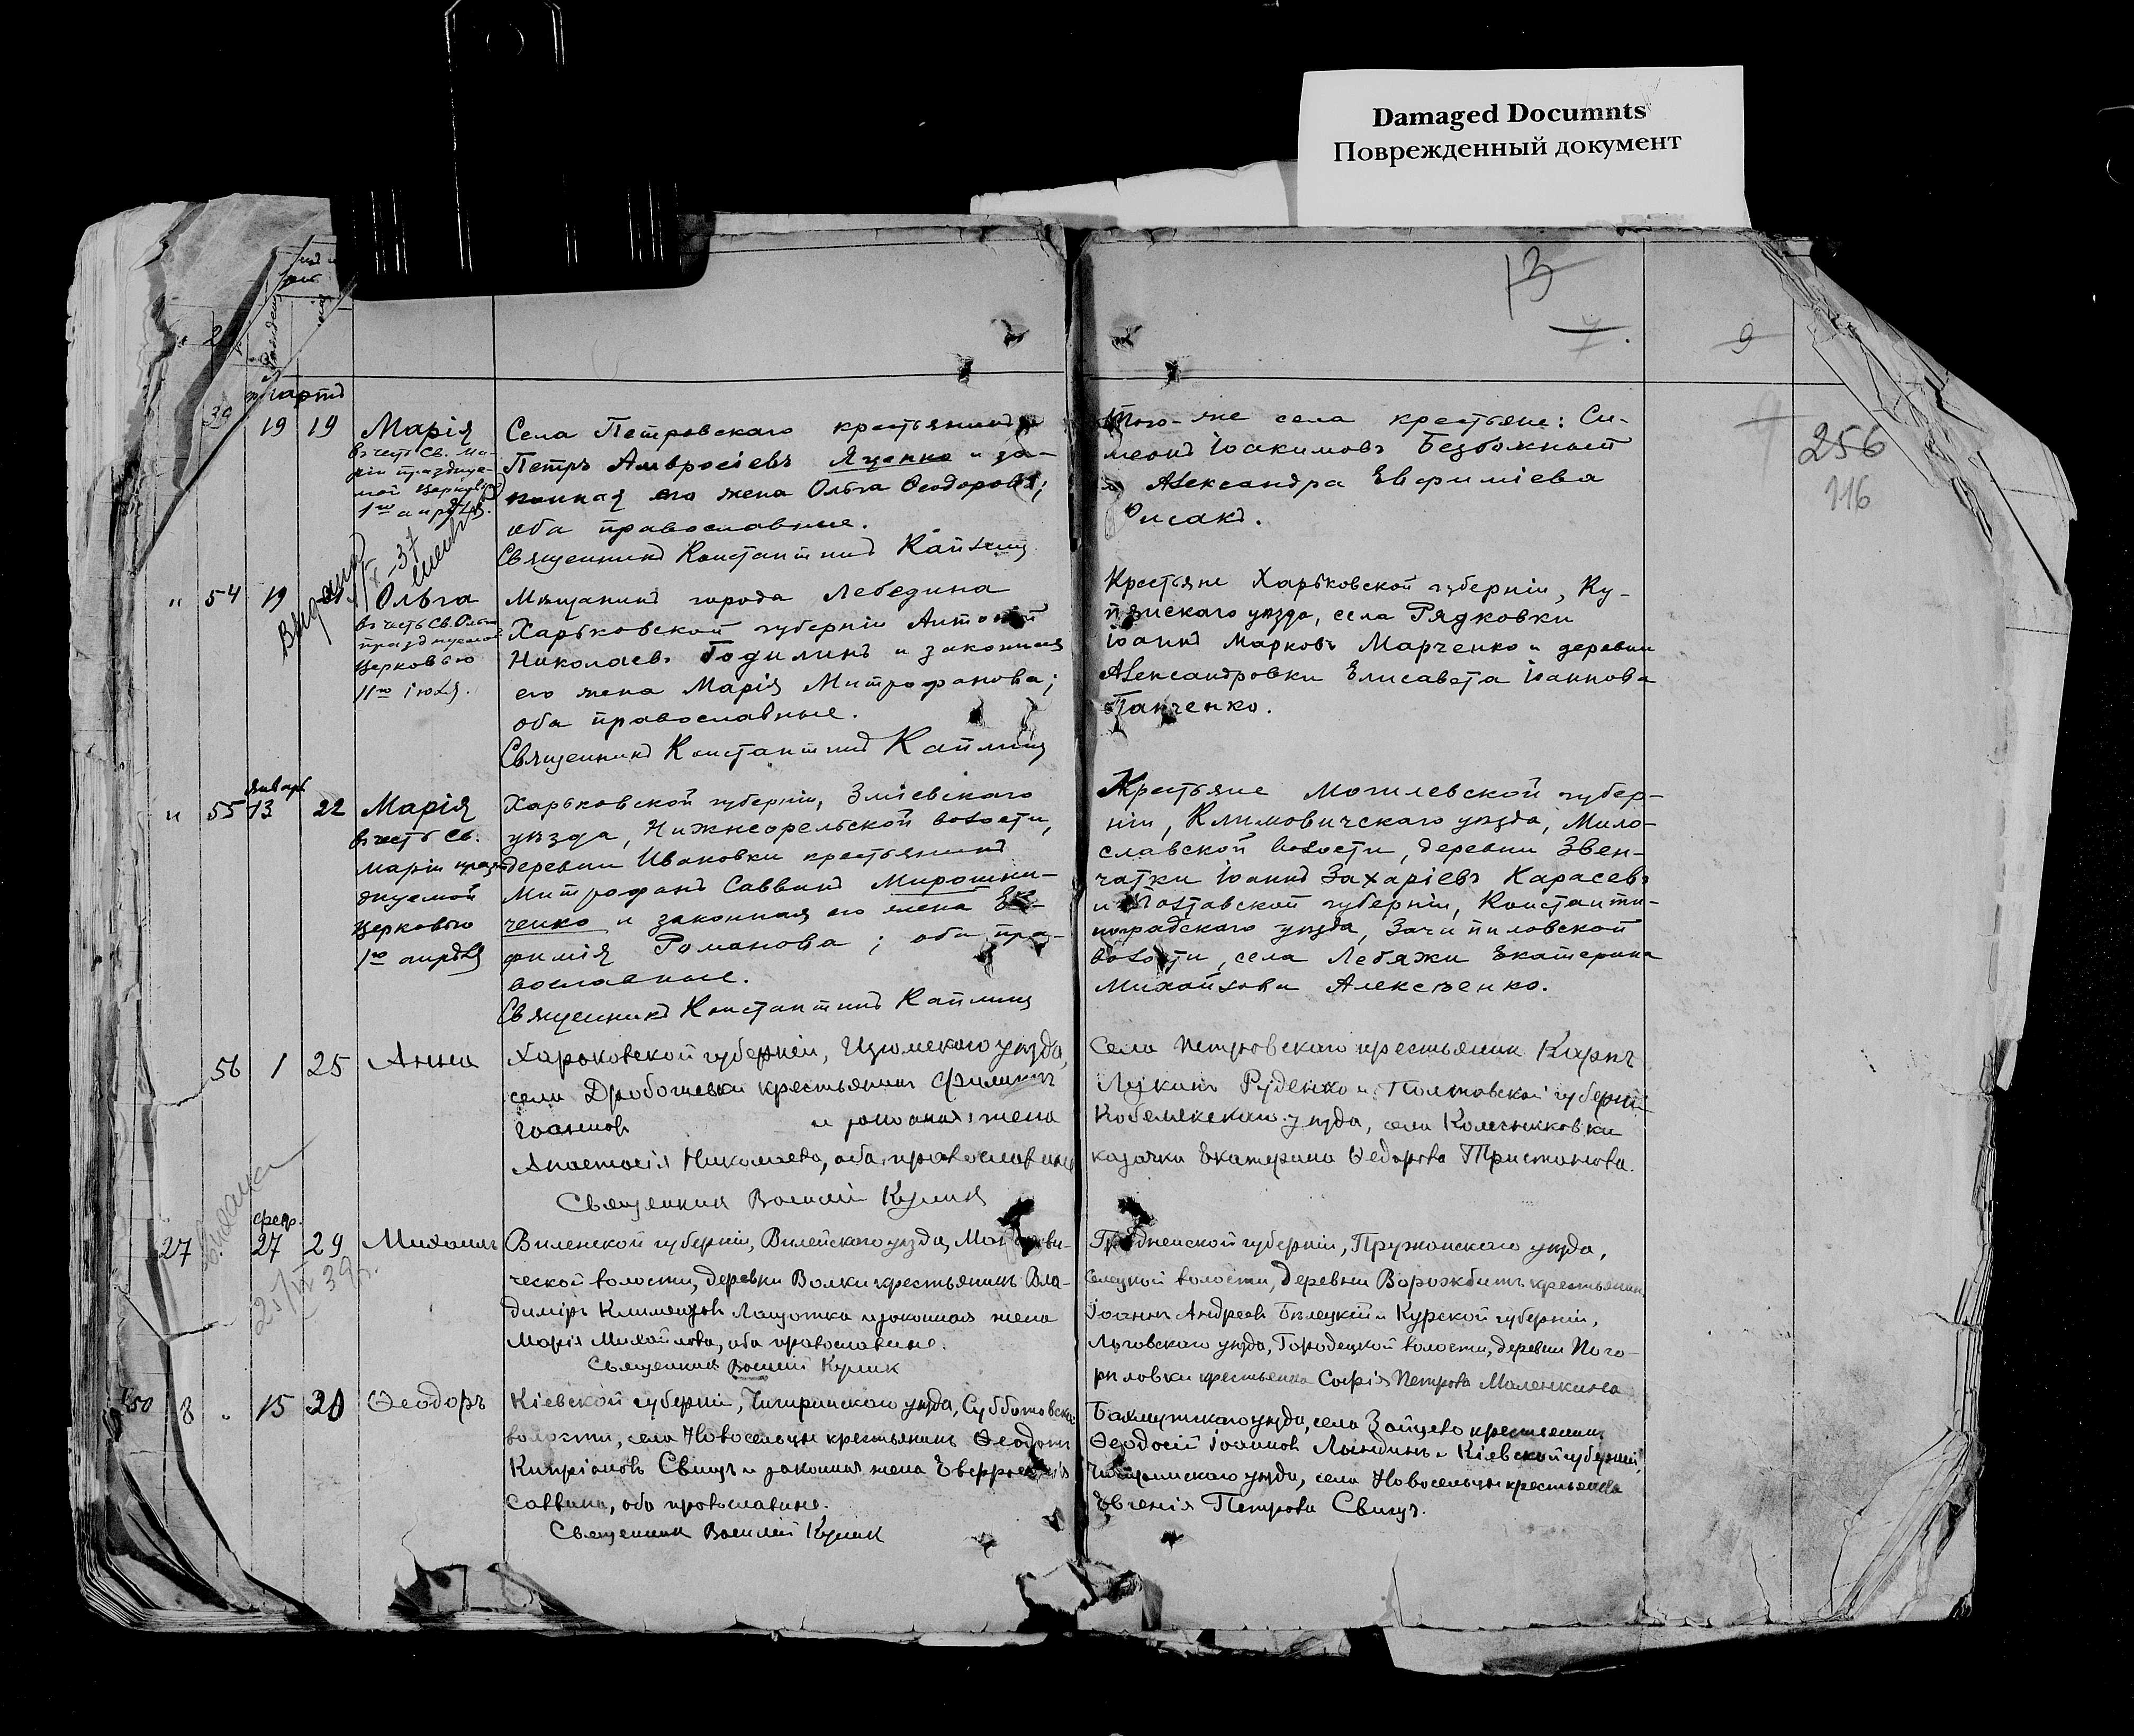 Damaged Documnts
Поврежденный документ
13
9
256
116
мартъ
19 19 Марія
въ честь Св. Ма-
ріи празднуе-
мой церковію
1го апрѣля.
Села Петровскаго крестьянинъ
Петръ Амвросіевъ Яценко и за-
конная его жена Ольга Ѳеодорова;
оба православные.
Священникъ Константинъ Каплинъ
Того-же села крестьяне: Си-
меонъ Іоакимовъ Безбожный
и Александра Евфиміева
" 54 19 Ольга
въ честь Св. Ольги
празднуемой
церковью
11го іюля.
Мѣщанинъ города Лебедина
Харьковской губерніи Антоній
Николаевъ Годилинъ и законная
его жена Марія Митрофанова;
оба православные.
Священникъ Константинъ Каплинъ
Крестьяне Харьковской губерніи, Ку-
пянскаго уѣзда, села Рядковки
Іоаннъ Марковъ Марченко и деревни
Александровки Елисавета Іоаннова
Панченко.
январь
" 55 13 22 Марія
въ честь Св.
Маріи праз-
днуемой
церковью
1го апрѣля
Харьковской губерніи, Зміевскаго
уѣзда, Нижнеорельской волости,
деревни Ивановки крестьянинъ
Митрофанъ Саввинъ Мирошни-
ченко и законная его жена Ев-
фимія Романова; оба пра-
вославные.
Священникъ Константинъ Каплинъ
Крестьяне Могилевской губер-
ніи, Климовичскаго уѣзда, Мило-
славской волости, деревни Звен-
чатки Іоаннъ Захаріевъ Карасевъ
и Полтавской губерніи, Константи-
ноградскаго уѣзда, Зачепиловской
волости, села Лебяжи Екатерина
Михайлова Алексѣенко.
56 1 25 Анна
Харьковской губерніи, Изюмскаго уѣзда,
села Дробышевки крестьянинъ Филиппъ
Іоанновъ и законная жена
Анастасія Николаева, оба православные
Священникъ Василій Куликъ
Села Петровскаго крестьянинъ Карпъ
Лукинъ Руденко и Полтавской губерніи
Кобелякскаго уѣзда, села
казачка Екатерина Ѳедорова
февр.
27 27 29 Михаилъ
25/VI 39г.
Виленской губерніи, Вилейскаго уѣзда,
ческой волости, деревни Волки крестьянинъ Вла-
диміръ Климентовъ и законная жена
Марія Михайлова, оба православные.
Священникъ Василій Куликъ
Гродненской губерніи, Пружанскаго уѣзда,
волости, деревни Ворожбитъ крестьянинъ
Іоаннъ Андреевъ Бѣлецкій и Курской губерніи,
Льговскаго уѣзда, Городецкой волости, деревни Пого-
рѣловки крестьянка Софія Петрова Маленкина
8 " 15 20 Ѳеодоръ
Кіевской губерніи, Чигиринскаго уѣзда, Субботовской
волости, села Новосельцы крестьянинъ Ѳеодотъ
Кипріановъ Свищъ и законная жена Евфросинія
Саввина, оба православные.
Священникъ Василій Куликъ
Бахмутскаго уѣзда, села Зайцево крестьянинъ
Ѳеодосій Іоанновъ и Кіевской губерніи,
Чигиринскаго уѣзда, села Новосельцы крестьянка
Евгенія Петрова Свищъ.